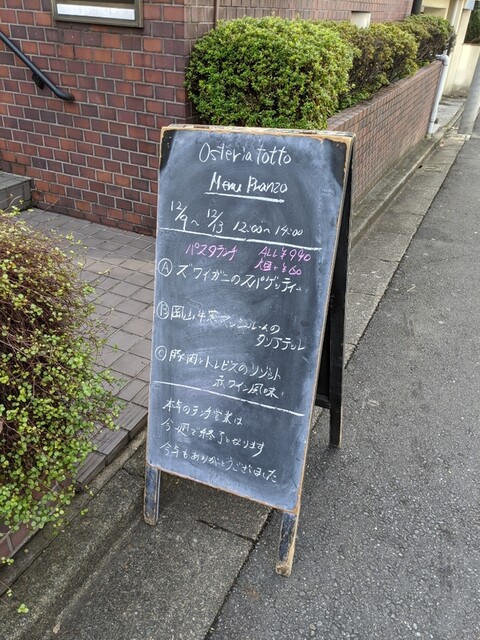 Osteria totto
Menu Pranzo
12/9〜12/13 12:00〜14:00
パスタランチ ALL ¥990
大盛 + ¥60
Ⓐ ズワイガニのスパゲッティー
Ⓑ 岡山牛マッシュルームの
タリアテッレ
Ⓒ 豚肉とトレビスのリゾット
赤ワイン風味
本年のランチ営業は
今週で終了となります
今年もありがとうございました